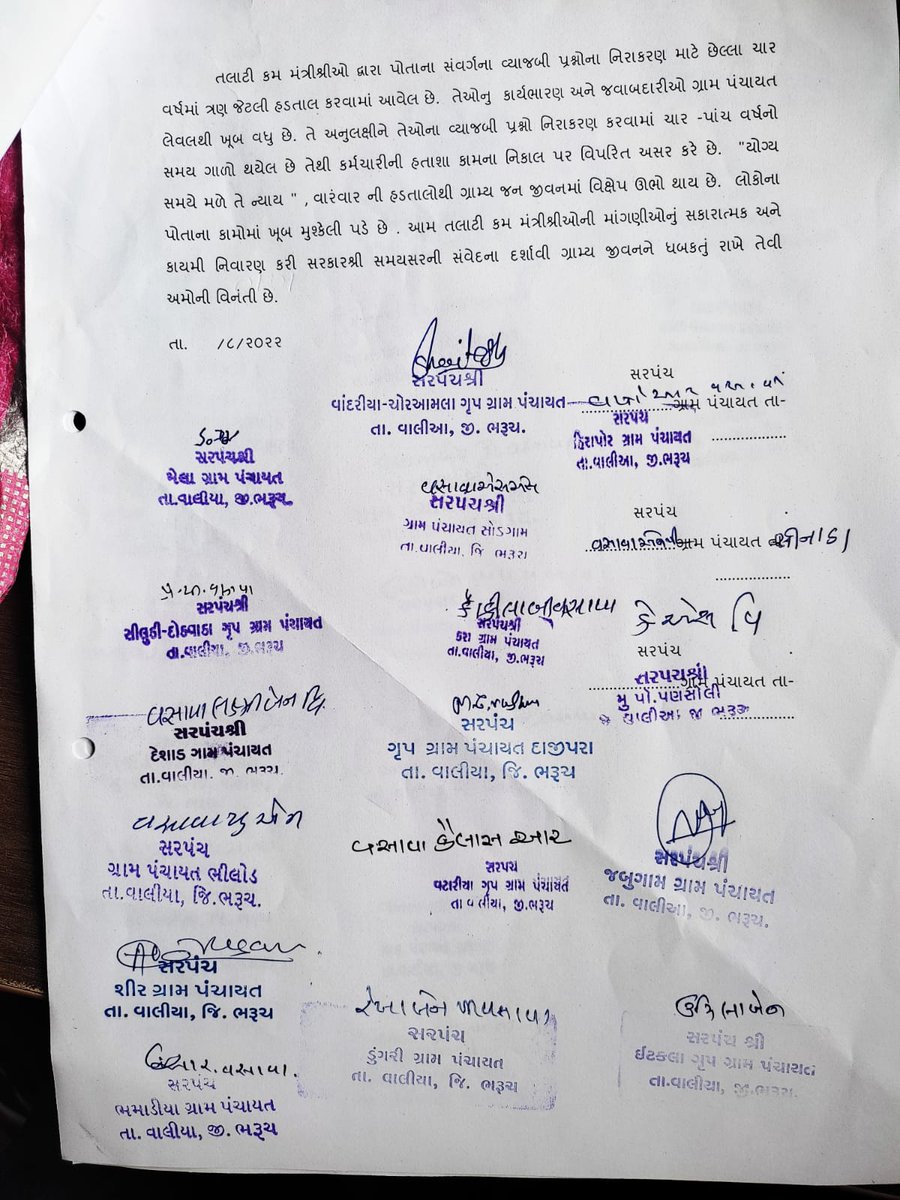 તલાટી કમ મંત્રીશ્રીઓ દ્વારા પોતાના સંવર્ગના વ્યાજબી પ્રશ્નોના નિરાકરણ માટે છેલ્લા ચાર
વર્ષમાં ત્રણ જેટલી હડતાલ કરવામાં આવેલ છે. તેઓનુ કાર્યભારણ અને જવાબદારીઓ ગ્રામ પંચાયત
લેવલથી ખૂબ વધુ છે. તે અનુલક્ષીને તેઓના વ્યાજબી પ્રશ્નો નિરાકરણ કરવામાં ચાર -પાંચ વર્ષનો
સમય ગાળો થયેલ છે તેથી કર્મચારીની હતાશા કામના નિકાલ પર વિપરિત અસર કરે છે. "યોગ્ય
સમયે મળે તે ન્યાય " , વારંવાર ની હડતાલોથી ગ્રામ્ય જન જીવનમાં વિક્ષેપ ઊભો થાય છે. લોકોના
પોતાના કામોમાં ખૂબ મુશ્કેલી પડે છે . આમ તલાટી કમ મંત્રીશ્રીઓની માંગણીઓનું સકારાત્મક અને
કાયમી નિવારણ કરી સરકારશ્રી સમયસરની સંવેદના દર્શાવી ગ્રામ્ય જીવનને ધબકતું રાખે તેવી
અમોની વિનંતી છે.
તા. /૮/૨૦૨૨
સરપંચશ્રી
વાંદરીયા-ચોરઆમલા ગૃપ ગ્રામ પંચાયત
તા. વાલીઆ, જી. ભરૂચ.
સરપંચ
ગ્રામ પંચાયત તા-
સરપંચ
હિરાપોર ગ્રામ પંચાયત
તા.વાલીઆ, જી.ભરૂચ
સરપંચશ્રી
ગ્રામ પંચાયત
તા.વાલીયા, જી.ભરૂચ.
સરપંચશ્રી
ગ્રામ પંચાયત સોડગામ
તા.વાલીયા. જિ ભરૂચ
સરપંચ
ગ્રામ પંચાયત
સરપંચશ્રી
સીલુડી-દોકવાઠા ગૃપ ગ્રામ પંચાયત
તા.વાલીયા, જી.ભરૂચ
સરપંચશ્રી
કરા ગ્રામ પંચાયત
તા.વાલીયા, જી.ભરૂચ
કે એસ વિ
સરપંચ
ગ્રામ પંચાયત તા-
સરપંચશ્રી
મુ પો.પણસોલી
વાલીઆ જી ભરૂચ
વસાવા લક્ષ્મીબેન વિ
સરપંચશ્રી
દેશાડ ગામ પંચાયત
તા.વાલીયા. જી. ભરૂચ.
સરપંચ
ગૃપ ગ્રામ પંચાયત દાજીપરા
તા. વાલીયા, જિ. ભરૂચ
સરપંચ
ગ્રામ પંચાયત ભીલોડ
તા.વાલીયા, જિ. ભરૂચ.
વસાવા કૈલાસ આર
સરપંચ
વટારીયા ગૃપ ગ્રામ પંચાયત
તા વાલીયા, જી.ભરૂચ
સરપંચશ્રી
જબુગામ ગ્રામ પંચાયત
તા. વાલીઆ, જી. ભરૂચ.
સરપંચ
શીર ગ્રામ પંચાયત
તા. વાલીયા, જિ. ભરૂચ
રેખાબેન
સરપંચ
ડુંગરી ગ્રામ પંચાયત
તા. વાલીયા, જિ. ભરૂચ
ઉર્મિલાબેન
સરપંચ શ્રી
ઈટકલા ગૃપ ગ્રામ પંચાયત
તા.વાલીયા, જી.ભરૂચ.
સરપંચ
ભમાડીયા ગ્રામ પંચાયત
તા. વાલીયા, જી. ભરૂચ